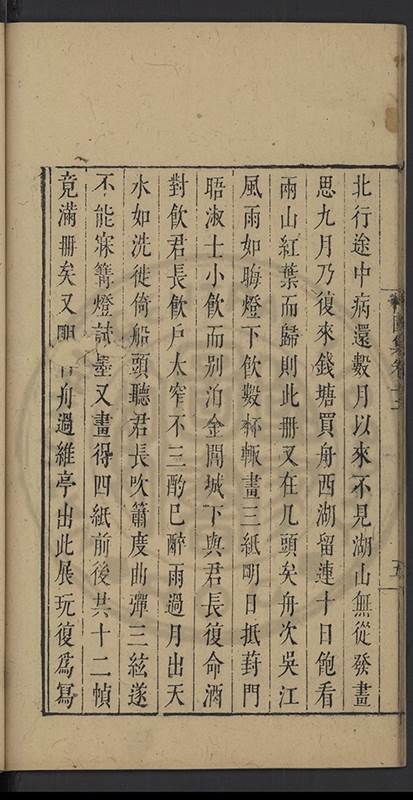 北行途中病還數月以來不見湖山無從發畫
思九月乃復來錢塘買舟西湖留連十日飽看
兩山紅葉而歸則此冊又在几頭矣舟次吳江
風雨如晦燈下飲數杯輒畫三紙明日抵葑門
晤淑士小飲而別泊金閶城下與君長復命酒
對飲君長飲戶太窄不三酌已醉雨過月出天
水如洗徙倚船頭聽君長吹簫度曲彈三絃遂
不能寐篝燈試墨又畫得四紙前後共十二幀
竟滿冊矣又明日舟過維亭出此展玩復爲寫